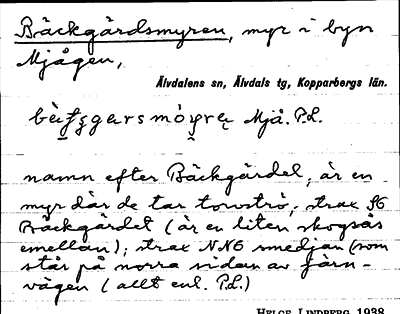 Bäckgårdsmyren, myr i byn
Mjågen,
Älvdalens sn, Älvdals tg, Kopparbergs län.
Mjå. P.L.
namn efter Bäckgärdet, är en
myr där de tar torvströ, strax SO
Bäckgärdet (är en liten skogsås
emellan), strax NNO smedjan (som
står på norra sidan av järn-
vägen (allt enl. P.L.)
HELGE LINDBERG 1938